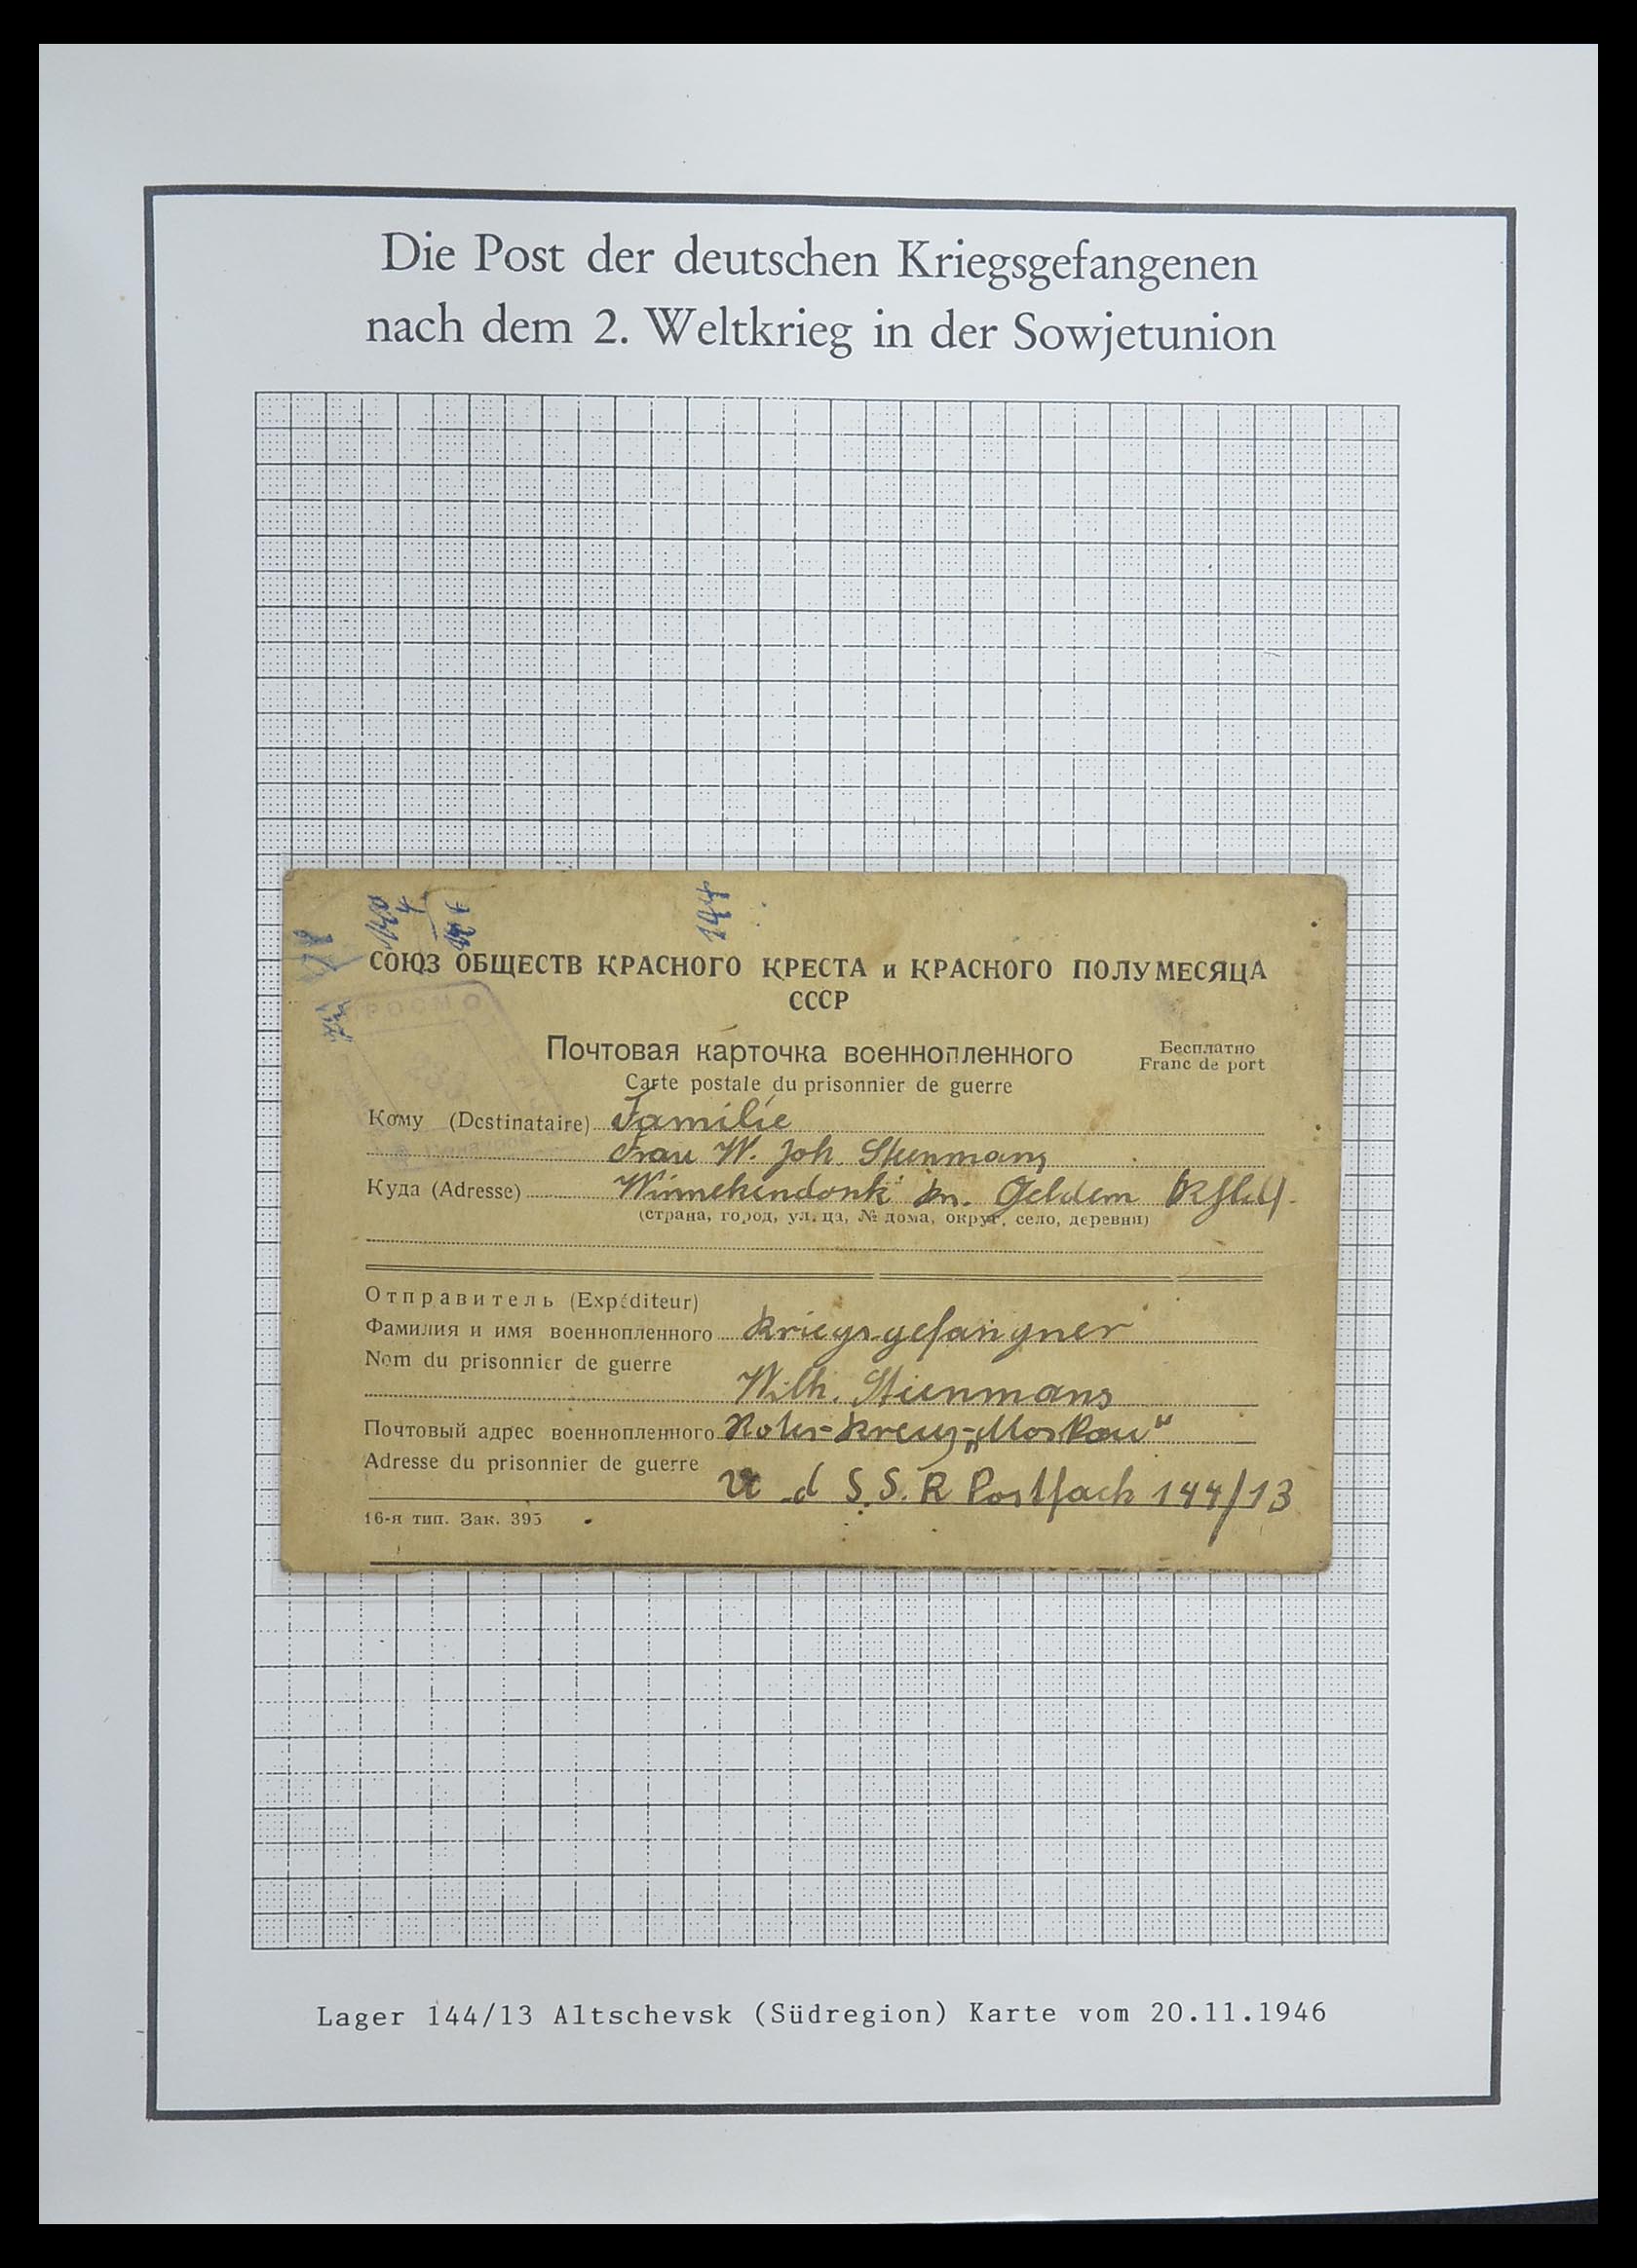 Die Post der deutschen Kriegsgefangenen
nach dem 2. Weltkrieg in der Sowjetunion
144
СОЮЗ ОБЩЕСТВ КРАСНОГО КРЕСТА и КРАСНОГО ПОЛУМЕСЯЦА
СССР
Почтовая карточка военнопленного
Бесплатно
Franc de port
Carte postale du prisonnier de guerre
Кому (Destinataire) Familie
Frau W. Joh. Stienmans
Куда (Adresse) Winnekendonk Geldern
(страна, город, улица, № дома, округ, село, деревня)
Отправитель (Expéditeur)
Фамилия и имя военнопленного Kriegsgefangner
Nom du prisonnier de guerre
Wilh. Stienmans
Почтовый адрес военнопленного Rotes-Kreuz-„Moskau“
Adresse du prisonnier de guerre
U d S.S.R Postfach 144/13
16-я тип. Зак. 395
Lager 144/13 Altschevsk (Südregion) Karte vom 20.11.1946